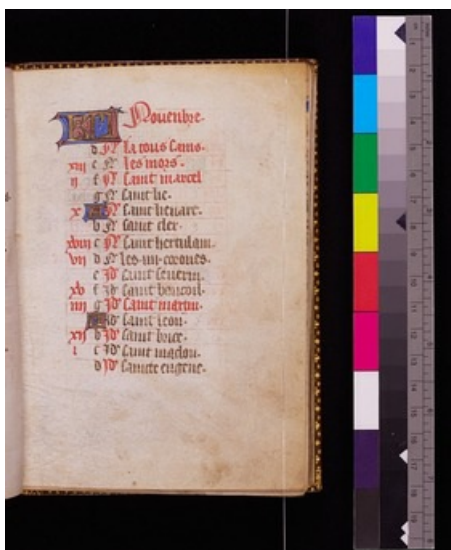 KL Nouenbre.
d N la tous sains.
xiii e N les mors.
ii f N saint marcel
g N saint lie.
x A N saint lienart.
b N saint cler.
xviii c N saint herculain.
vii d N les .iiii. corones.
e Id saint seuerin.
xv f Id saint
iiii g Id saint martin.
A Id saint leon.
xii b Id saint brice.
i c Id saint maclou.
d Id sainte eugene.